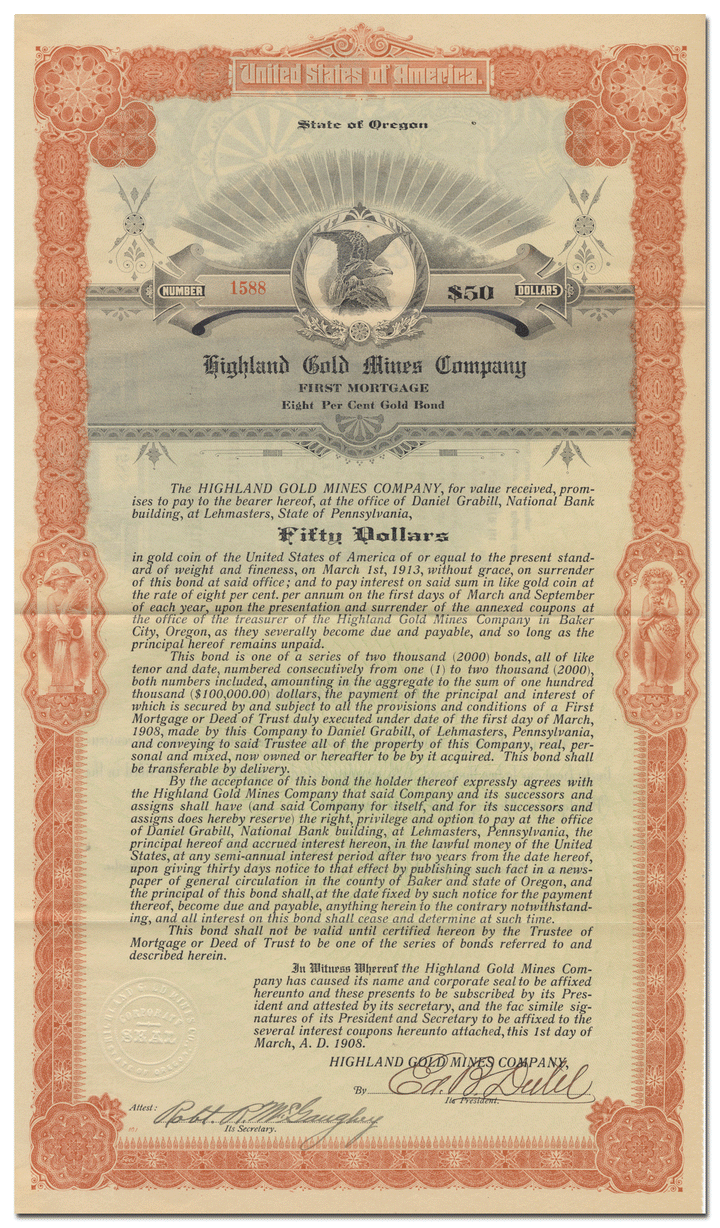 United States of America.
State of Oregon
NUMBER 1588 $50 DOLLARS
Highland Gold Mines Company
FIRST MORTGAGE
Eight Per Cent Gold Bond
The HIGHLAND GOLD MINES COMPANY, for value received, prom-
ises to pay to the bearer hereof, at the office of Daniel Grabill, National Bank
building, at Lehmasters, State of Pennsylvania,
Fifty Dollars
in gold coin of the United States of America of or equal to the present stand-
ard of weight and fineness, on March 1st, 1913, without grace, on surrender
of this bond at said office; and to pay interest on said sum in like gold coin at
the rate of eight per cent. per annum on the first days of March and September
of each year, upon the presentation and surrender of the annexed coupons at
the office of the treasurer of the Highland Gold Mines Company in Baker
City, Oregon, as they severally become due and payable, and so long as the
principal hereof remains unpaid.
This bond is one of a series of two thousand (2000) bonds, all of like
tenor and date, numbered consecutively from one (1) to two thousand (2000),
both numbers included, amounting in the aggregate to the sum of one hundred
thousand ($100,000.00) dollars, the payment of the principal and interest of
which is secured by and subject to all the provisions and conditions of a First
Mortgage or Deed of Trust duly executed under date of the first day of March,
1908, made by this Company to Daniel Grabill, of Lehmasters, Pennsylvania,
and conveying to said Trustee all of the property of this Company, real, per-
sonal and mixed, now owned or hereafter to be by it acquired. This bond shall
be transferable by delivery.
By the acceptance of this bond the holder thereof expressly agrees with
the Highland Gold Mines Company that said Company and its successors and
assigns shall have (and said Company for itself, and for its successors and
assigns does hereby reserve) the right, privilege and option to pay at the office
of Daniel Grabill, National Bank building, at Lehmasters, Pennsylvania, the
principal hereof and accrued interest hereon, in the lawful money of the United
States, at any semi-annual interest period after two years from the date hereof,
upon giving thirty days notice to that effect by publishing such fact in a news-
paper of general circulation in the county of Baker and state of Oregon, and
the principal of this bond shall, at the date fixed by such notice for the payment
thereof, become due and payable, anything herein to the contrary notwithstand-
ing, and all interest on this bond shall cease and determine at such time.
This bond shall not be valid until certified hereon by the Trustee of
Mortgage or Deed of Trust to be one of the series of bonds referred to and
described herein.
In Witness Whereof the Highland Gold Mines Com-
pany has caused its name and corporate seal to be affixed
hereunto and these presents to be subscribed by its Pres-
ident and attested by its secretary, and the fac simile sig-
natures of its President and Secretary to be affixed to the
several interest coupons hereunto attached, this 1st day of
March, A. D. 1908.
HIGHLAND GOLD MINES COMPANY,
By Ed. B. Dubel
Its President.
Attest: Robt. R. McGaughey
Its Secretary.